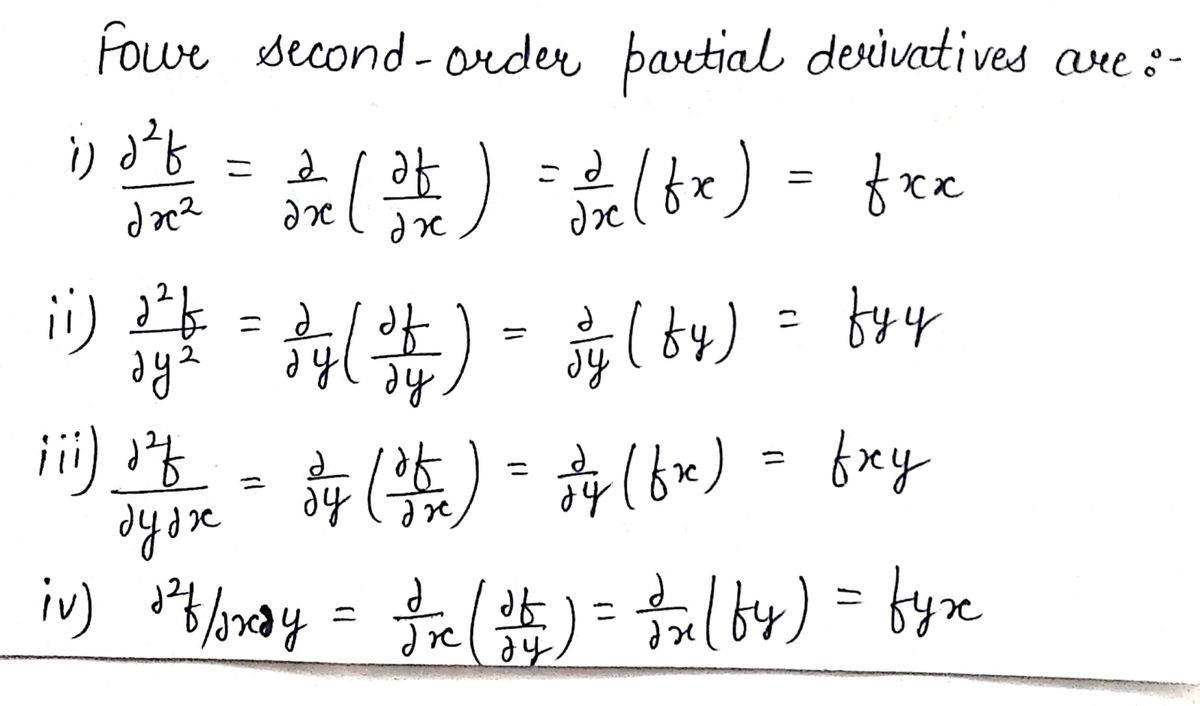 Four second-order partial derivatives are :-
i) ∂²f/∂x² = ∂/∂x (∂f/∂x) = ∂/∂x (fx) = fxx
ii) ∂²f/∂y² = ∂/∂y (∂f/∂y) = ∂/∂y (fy) = fyy
iii) ∂²f/∂y∂x = ∂/∂y (∂f/∂x) = ∂/∂y (fx) = fxy
iv) ∂²f/∂x∂y = ∂/∂x (∂f/∂y) = ∂/∂x (fy) = fyx